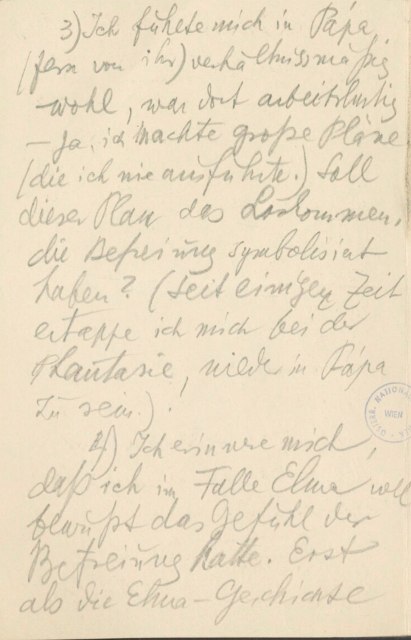 3) Ich fühlte mich in Pápa
(fern von ihr) verhältnissmäßig
wohl, war dort arbeitslustig
– Ja, ich machte große Pläne
(die ich nie ausführte.) Soll
dieser Plan das Loskommen,
die Befreiung symbolisiert
haben? (Seit einigen Zeit
ertappe ich mich bei der
Phantasie, wieder in Pápa
zu sein.) !
4) Ich erinnere mich,
daß ich im Falle Elma voll
bewußt das Gefühl der
Befreiung hatte. Erst
als die Elma-Geschichte
WIEN